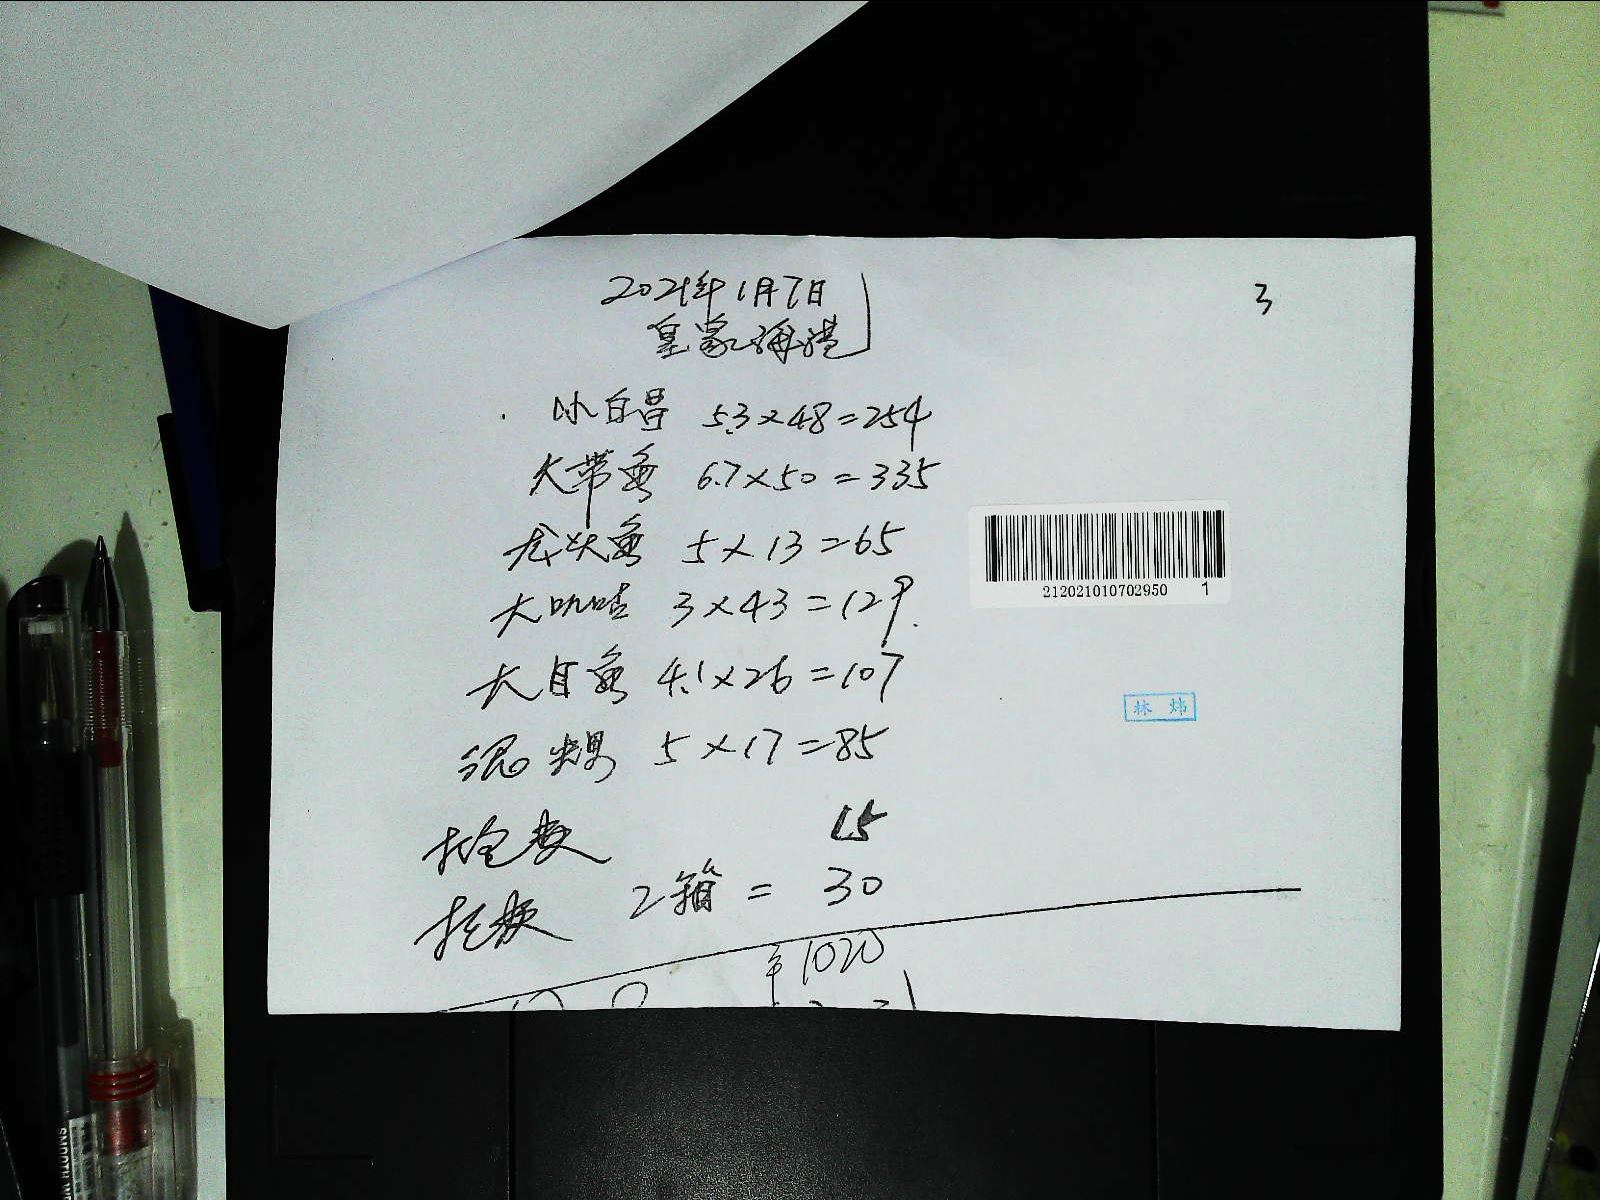 2021年1月7日
皇家海港
3
小白昌 5.3×48=254
大带鱼 6.7×50=335
龙头鱼 5×13=65
大叽咕 3×43=129
大目鱼 4.1×26=107
5×17=85
打包费 15
托费 2箱=30
¥1020
212021010702950 1
林炜